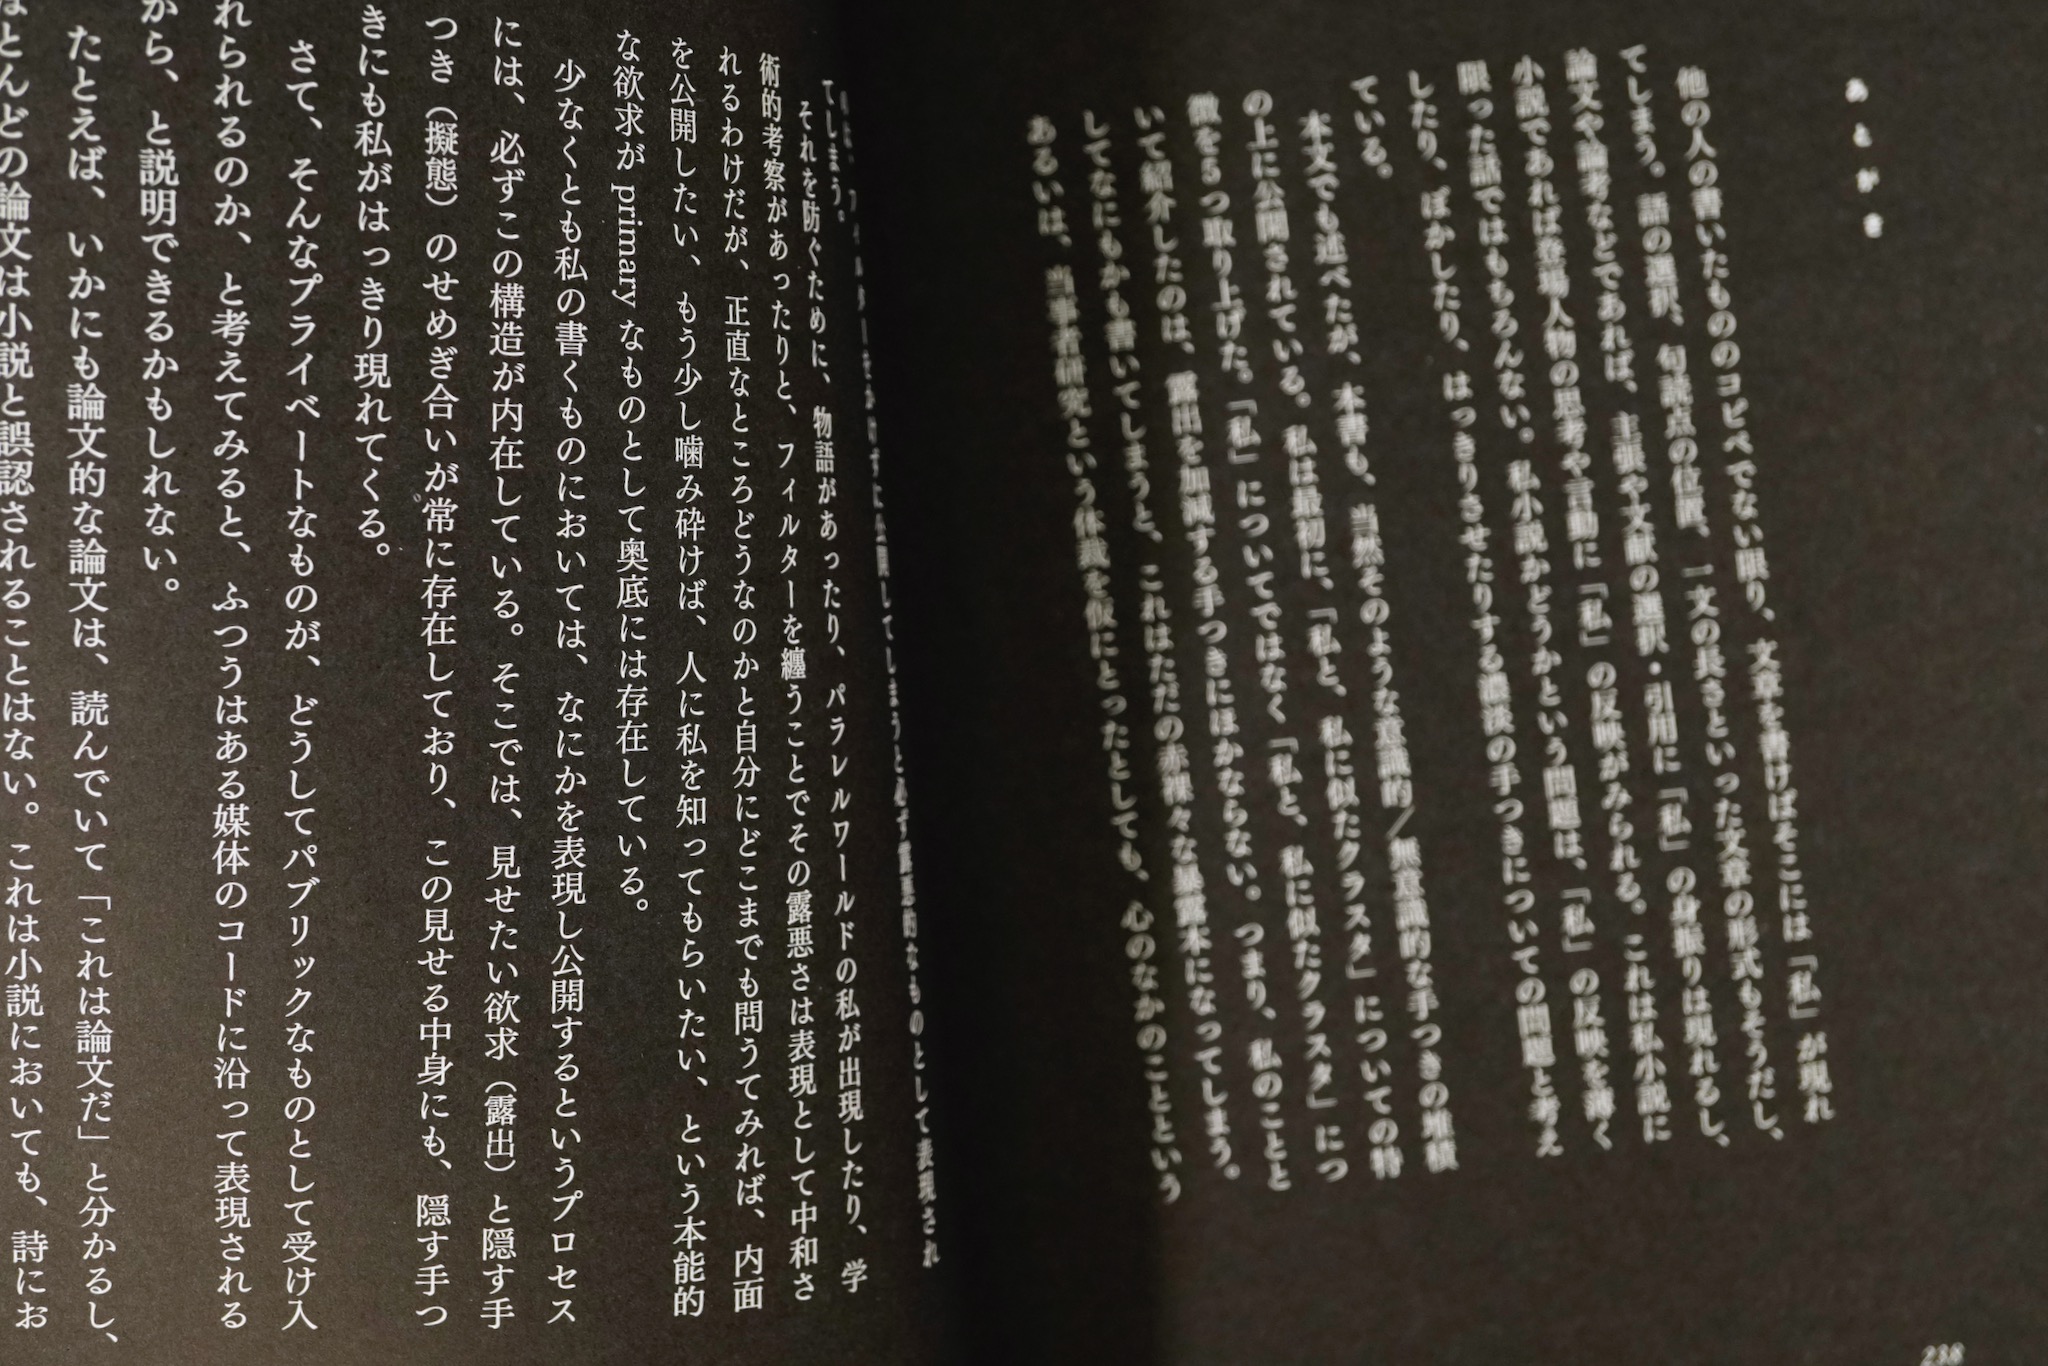 あとがき
他の人の書いたもののコピペでない限り、文章を書けばそこには「私」が現れ
てしまう。語の選択、句読点の位置、一文の長さといった文章の形式もそうだし、
論文や論考などであれば、主張や文献の選択・引用に「私」の身振りは現れるし、
小説であれば登場人物の思考や言動に「私」の反映がみられる。これは私小説に
限った話ではもちろんない。私小説かどうかという問題は、「私」の反映を薄く
したり、ぼかしたり、はっきりさせたりする濃淡の手つきについての問題と考え
ている。
本文でも述べたが、本書も、当然そのような意識的／無意識的な手つきの堆積
の上に公開されている。私は最初に、「私と、私に似たクラスタ」についての特
徴を5つ取り上げた。「私」についてではなく「私と、私に似たクラスタ」につ
いて紹介したのは、露出を加減する手つきにほかならない。つまり、私のことと
してなにもかも書いてしまうと、これはただの赤裸々な暴露本になってしまう。
あるいは、当事者研究という体裁を仮にとったとしても、心のなかのことという
してしまうと必ず露悪的なものとして表現され
てしまう。
それを防ぐために、物語があったり、パラレルワールドの私が出現したり、学
術的考察があったりと、フィルターを纏うことでその露悪さは表現として中和さ
れるわけだが、正直なところどうなのかと自分にどこまでも問うてみれば、内面
を公開したい、もう少し噛み砕けば、人に私を知ってもらいたい、という本能的
な欲求が primary なものとして奥底には存在している。
少なくとも私の書くものにおいては、なにかを表現し公開するというプロセス
には、必ずこの構造が内在している。そこでは、見せたい欲求（露出）と隠す手
つき（擬態）のせめぎ合いが常に存在しており、この見せる中身にも、隠す手つ
きにも私がはっきり現れてくる。
さて、そんなプライベートなものが、どうしてパブリックなものとして受け入
れられるのか、と考えてみると、ふつうはある媒体のコードに沿って表現される
から、と説明できるかもしれない。
たとえば、いかにも論文的な論文は、読んでいて「これは論文だ」と分かるし、
ほとんどの論文は小説と誤認されることはない。これは小説においても、詩にお
238